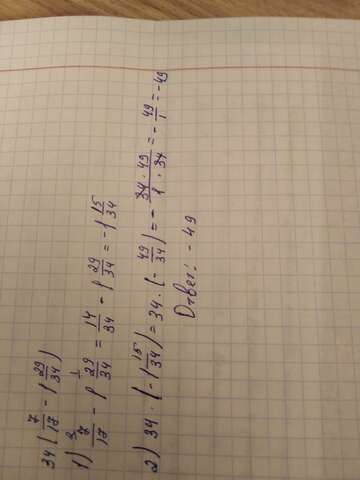 34 (7/17 - 1 29/34)
1) 7/17 ² - 1 29/34 ¹ = 14/34 - 1 29/34 = -1 15/34
2) 34 · (-1 15/34) = 34 · (- 49/34) = - 34 · 49 / 1 · 34 = - 49/1 = -49
Ответ: -49